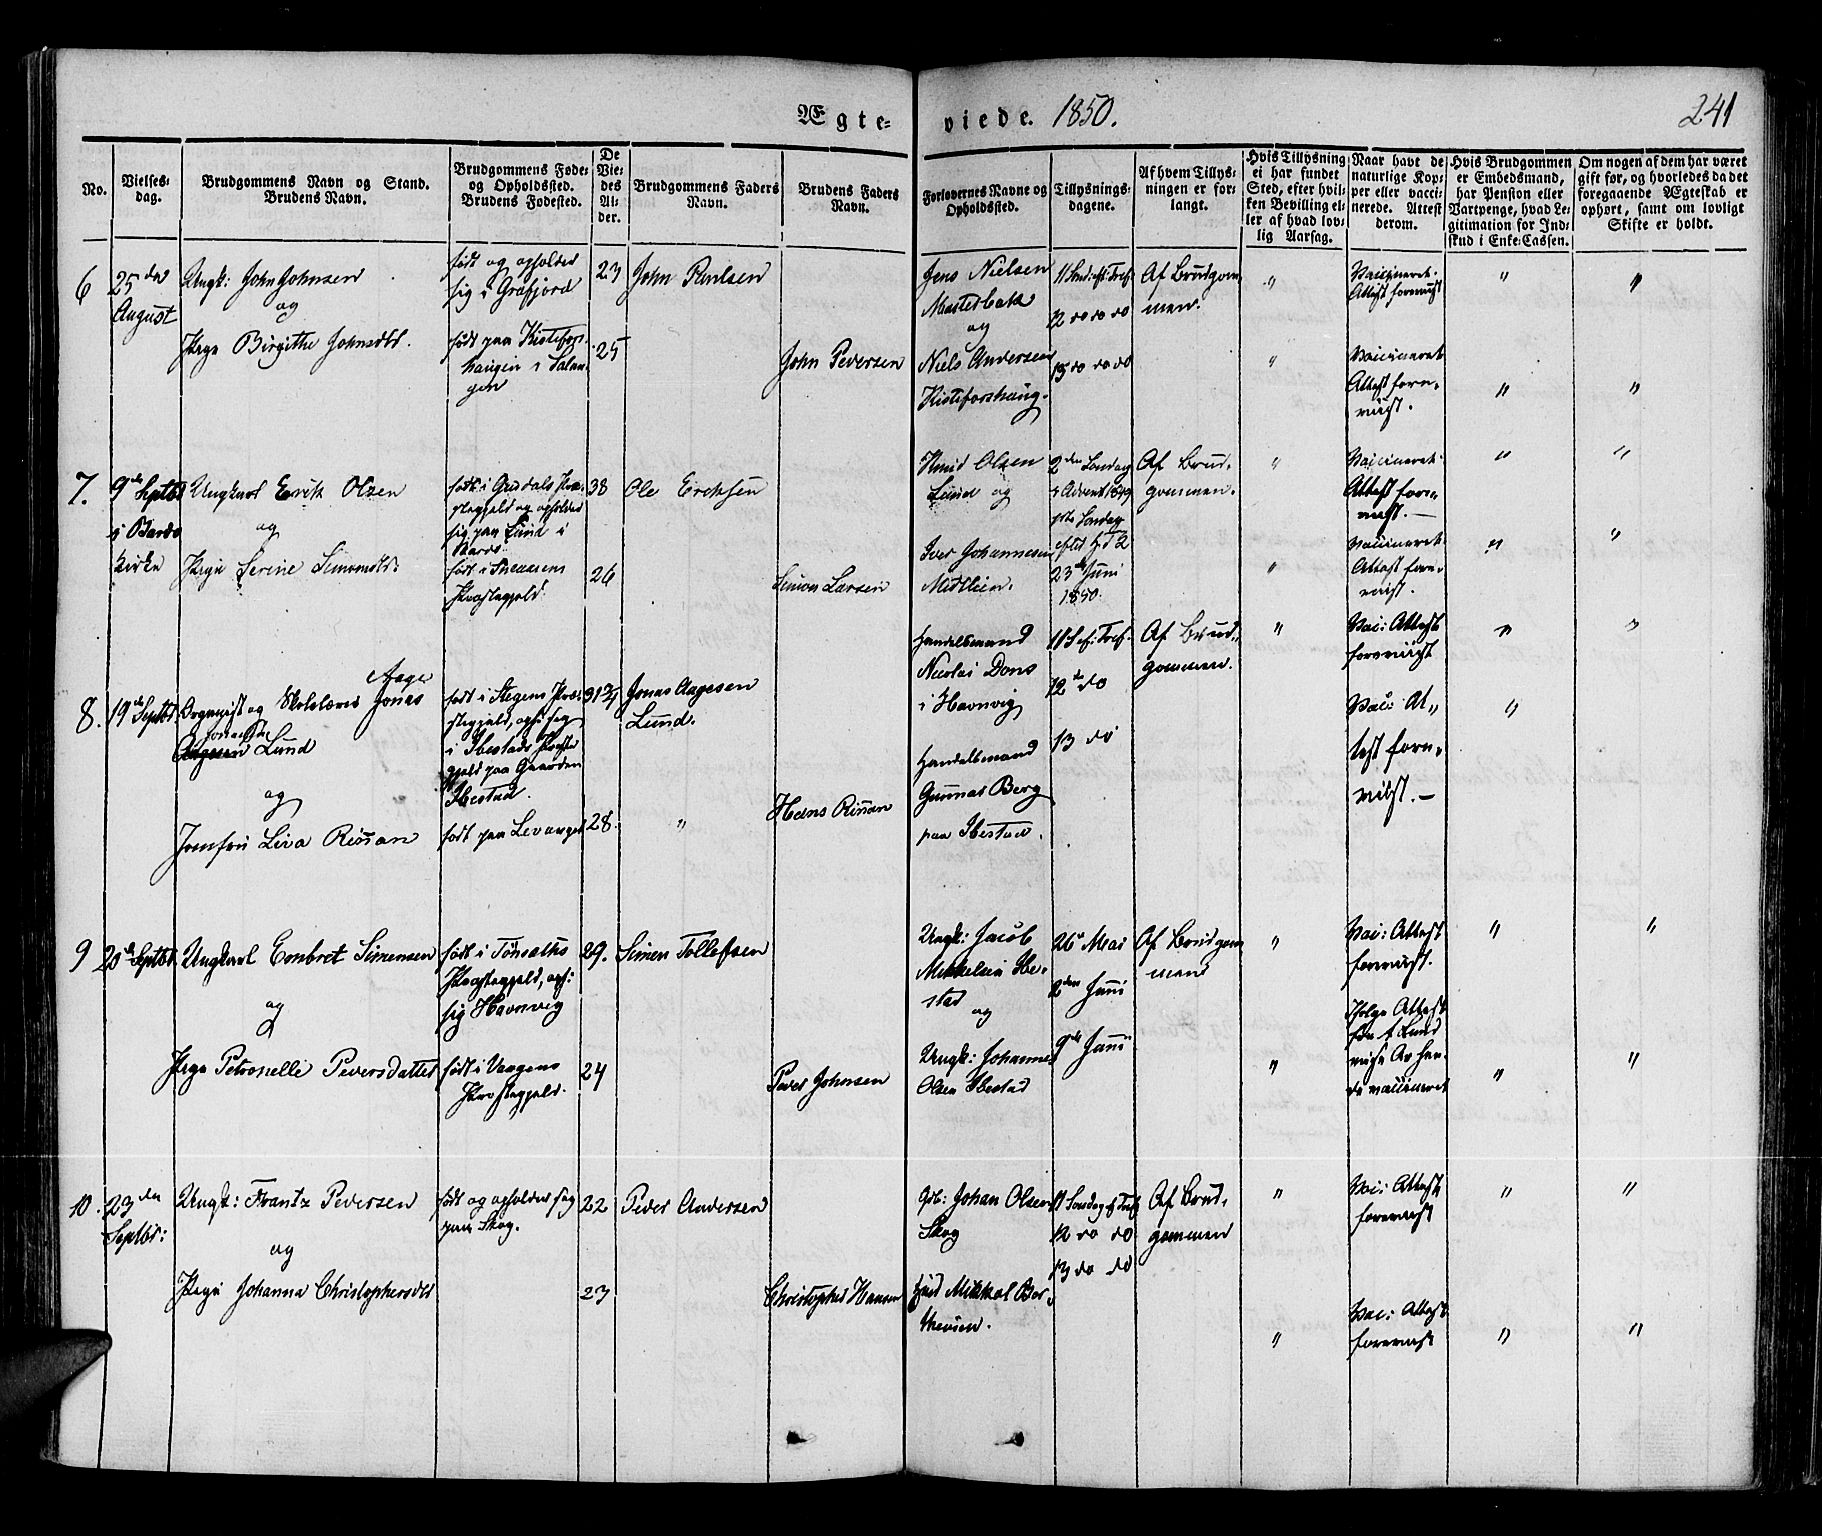 Ægte- viede. 1850. 241
No.
Vielses-
dag.
Brudgommens Navn og Stand.
Brudens Navn.
Brudgommens Føde-
og Opholdssted.
Brudens Fødested.
De
Vie-
des
Al-
der.
Brudgommens Faders
Navn.
Brudens Faders
Navn.
Forlovernes Navne og
Opholdssted.
Tillysnings-
dagene.
Af hvem Tillys-
ningen er for-
langt.
Hvis Tillysning
ei har fundet
Sted, efter hvil-
ken Bevilling el-
ler af hvad lov-
lig Aarsag.
Naar havt de
naturlige Kop-
per eller vacci-
nerede. Attest
derom.
Hvis Brudgommen
er Embedsmand,
har Pension eller
Vartpenge, hvad Le-
gitimation for Ind-
skud i Enke-Cassen.
Om nogen af dem har været
gift før, og hvorledes da det
foregaaende Ægteskab er
ophørt, samt om lovligt
Skifte er holdt.
6
25 den
August
Ungk: John Johnsen
og
Pige Birgithe Johnsdtr.
født og opholder
sig i Gråfjord
født paa Kistefors-
haugen i Salan-
gen
23
25
John Paulsen
John Pedersen
Jens Nielsen
Mosterbak
og
Niels Andersen
Kisteforshaug.
11 Sød: eft: Tref
12 do do do
13 do do do
Af Brudgom-
men.
"
"
Vaccineret.
Attest foreviist
Vaccineret
Attest fore-
viist.
"
"
"
"
7.
9de Septbr
i Bardo
Kirke
Ungkarl Erik Olsen
og
Pige Serine Simonsdtr
født i Gusdals Præ-
stegjeld og opholder
sig paa Lund i
Bardo.
født i Præstegjeld.
38
26
Ole Ericksen
Simon Larsen
Knud Olsen
Lund og
Iver Johannesen
Midtlien.
2den Søndag
i Advent 1849
1ste Søndag
efter H T K
23de Juni
1850.
Af Brud-
gommen.
"
"
Vaccineret.
Attest fore-
viist.
Vaccineret.
Attest fore-
viist.
"
"
"
"
8.
19de Septbr
Organist og Skolelærer Jonas
Aage
Jonassen
Aagesen Lund
og
Jomfru Lina Rissan
født i Stegens Præ-
stegjeld, oph: sig
i Ibestads Præste-
gjeld paa Gaarden
Ibestad.
født paa Levanger
31 3/4
28.
Jonas Aagesen
Lund.
"
Hans Rissan
Handelsmand
Nicolai Dons
i Havnvig
Handelsmand
Gunnar Berg
paa Ibestad.
11 S. ef: Tref.
12te do
13 do
Af Brud-
gommen.
"
Vac: Attest
foreviist
Vac: At-
test fore-
viist.
"
"
"
9
20de Septbr.
Ungkarl Embret Simensen
og
Pige Petronelle Pedersdatter
født i Tønsæths
Præstegjeld, oph:
sig Havnvig
født i Vaagens
Præstegjeld.
29.
24
Simen Tollefsen
Peder Johnsen
Ungk: Jacob
Mikkelsen Ibe-
stad
og
Ungk: Johannes
Olsen Ibestad
26de Mai
2den Juni
9de Juni
Af Brudgom-
men
"
"
Vac: Attest
foreviist.
Ifølge Attest
fra Lund
vaccineret
"
"
"
"
10.
23 den
Septbr:
Ungk: Frantz Pedersen
og
Pige Johanna Christophersdtr
født og opholder sig
paa Skog.
22
23
Peder Andersen
Christopher Hansen
Grb: Johan Olsen
Skog
Mikkel Ber-
thevsen.
11 Søndag ef Tref
12 do do
13 do do
Af Brud-
gommen
"
"
Vac: Attest
foreviist
Vac: Attest
foreviist
"
"
"
"